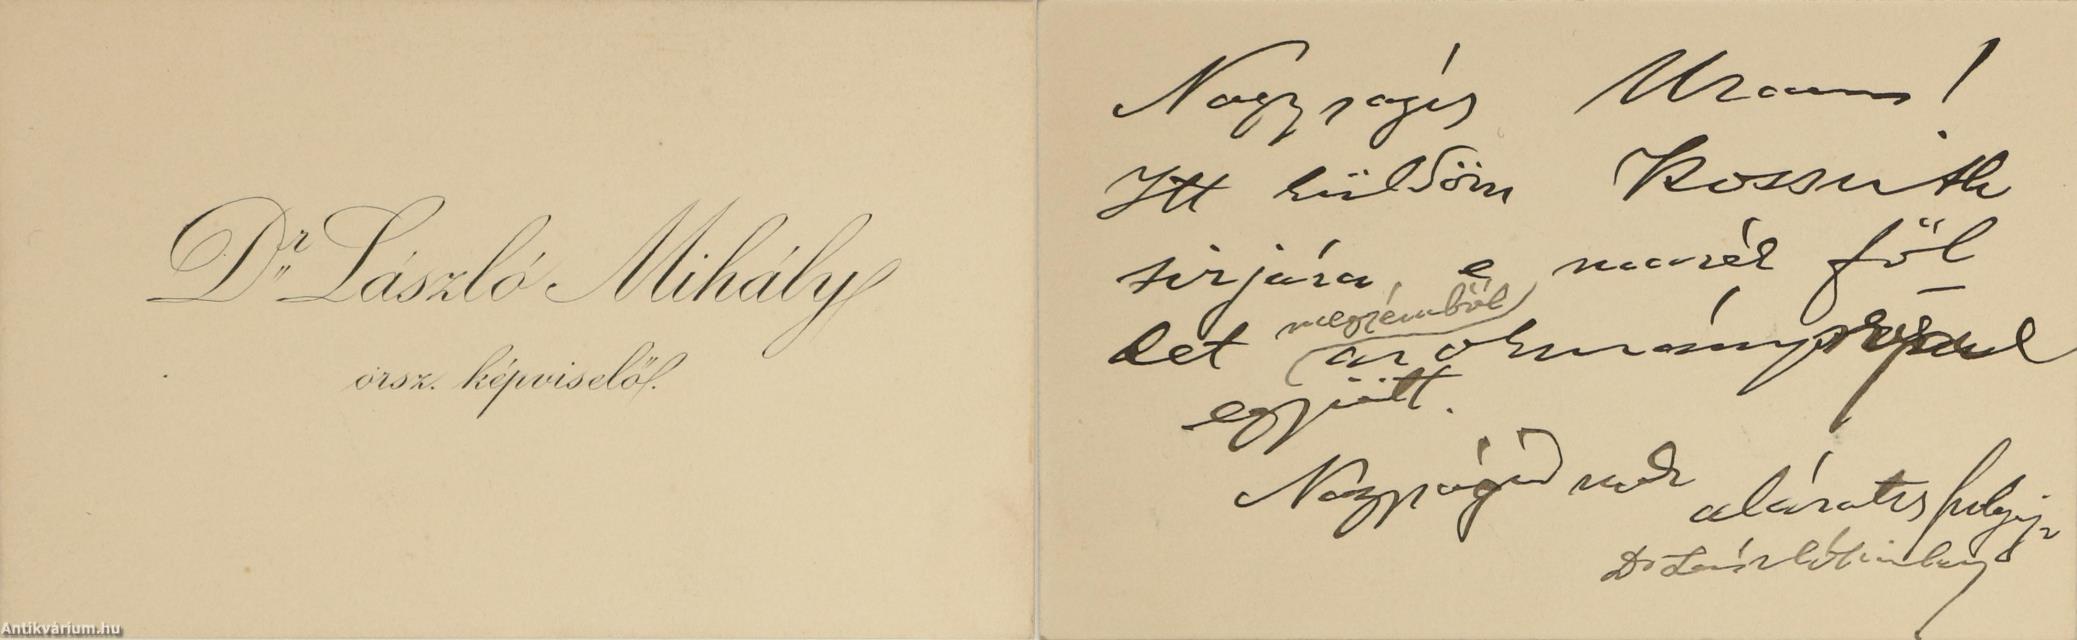 Dr László Mihály
orsz. képviselő.
Nagyságos Uram!
Itt küldöm Kossuth
sirjára e marék föl-
det megyémből
az okmány
együtt.
Nagyságodnak
alázatos
Dr László Mihály
Antikvárium.hu